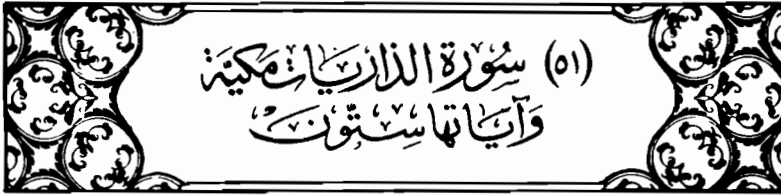 (٥١) سُورَة الذاريَات مَكيَّة
وَآيَاتها سِتّون